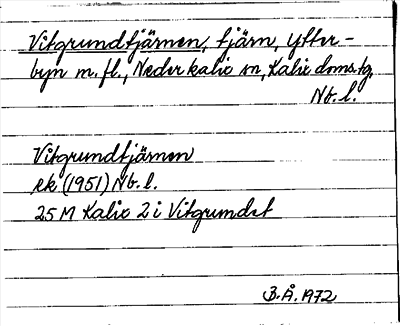 Vitgrundtjärnen, tjärn, Ytter-
byn m. fl., Nederkalix sn, Kalix doms.tg.
Nb. l.
Vitgrundtjärnen
ek (1951) Nb. l.
25 M Kalix 2 i Vitgrundet
B.Å. 1972